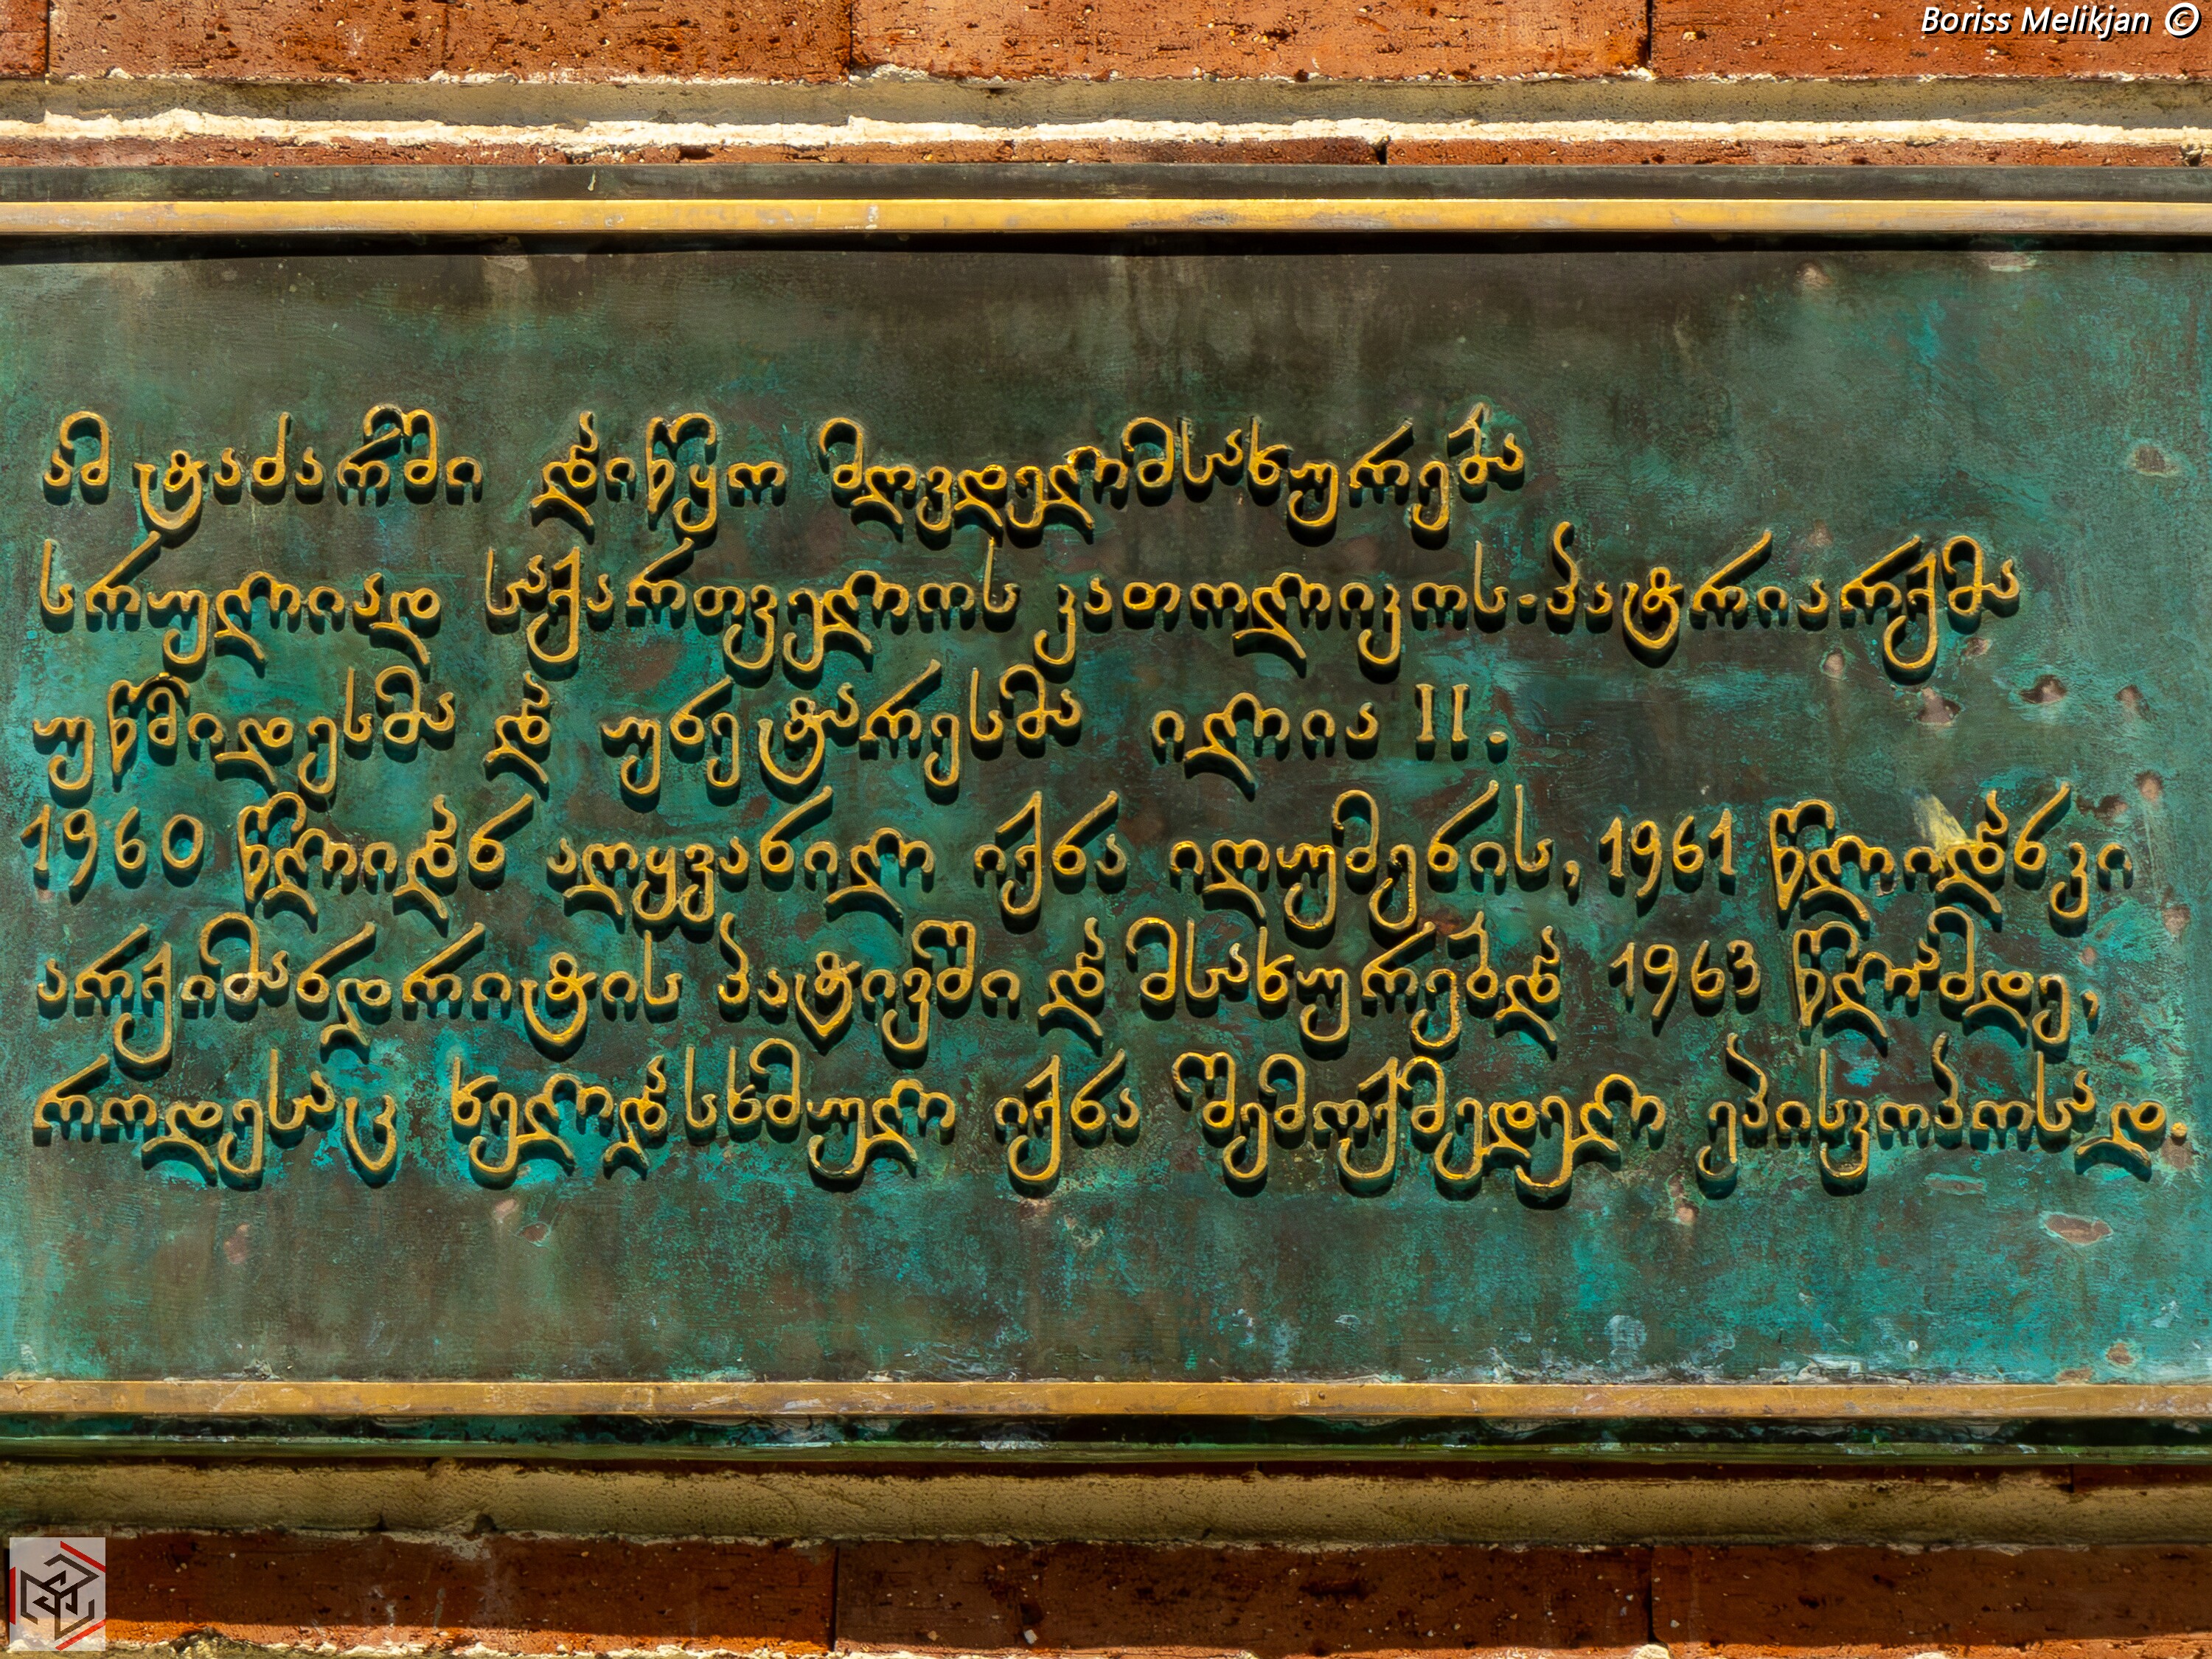 Boriss Melikjan ©
ამ ტაძარში დაიწყო მღვდელმსახურება
სრულიად საქართველოს კათოლიკოს-პატრიარქმა
უწმიდესმა და უნეტარესმა ილია II.
1960 წლიდან აღყვანილ იქნა იღუმენის, 1961 წლიდანკი
არქიმანდრიტის პატივში და მსახურებდა 1963 წლამდე,
როდესაც ხელდასხმულ იქნა შემოქმედელ ეპისკოპოსად.